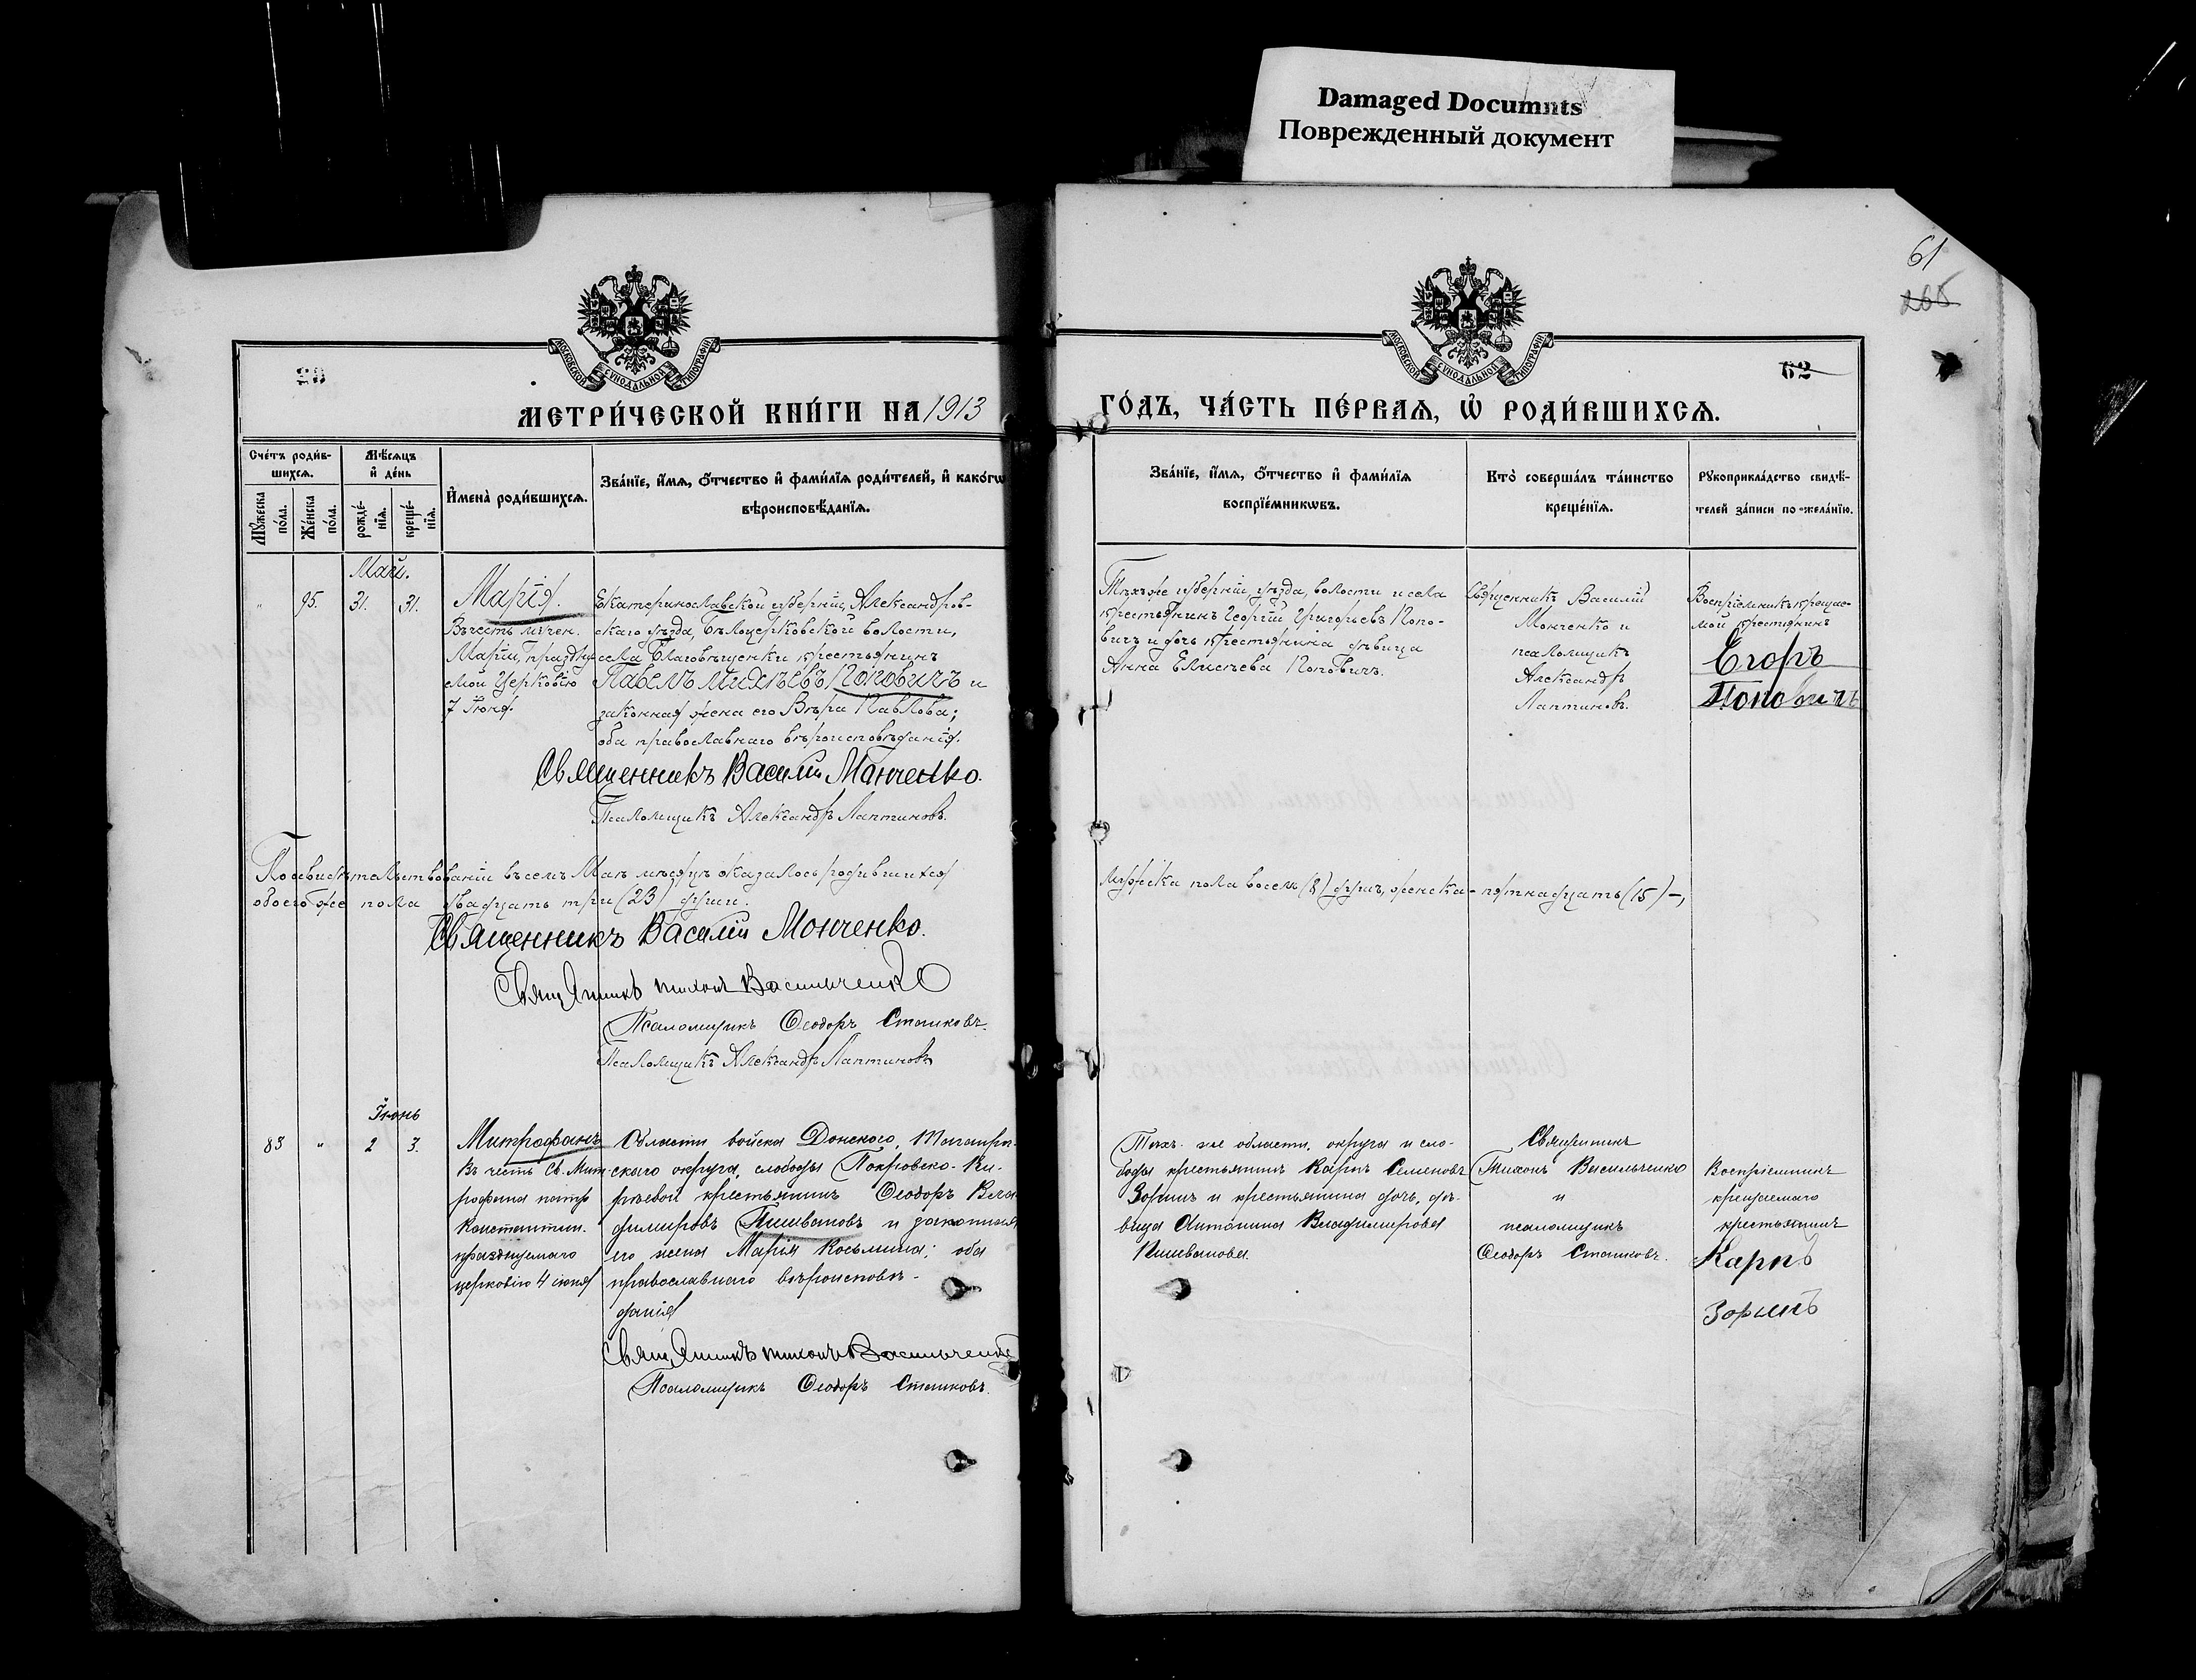 Damaged Documnts
Поврежденный документ
61
МОСКОВСКОЙ СУНОДАЛЬНОЙ ТИПОГРАФІИ
МОСКОВСКОЙ СУНОДАЛЬНОЙ ТИПОГРАФІИ
62
МЕТРИ́ЧЕСКОЙ КНИ́ГИ НА 1913
ГО́ДЪ, ЧА́СТЬ ПЕ́РВАѦ, Ѡ҆ РОДИ́ВШИХСѦ.
Сче́тъ роди́в-
шихсѧ.
Мѣ́сѧцъ
и҆ де́нь
Мꙋ́жеска
по́ла.
Же́нска
по́ла.
рожде́-
нїѧ.
креще́-
нїѧ.
И҆мена̀ роди́вшихсѧ.
Зва́нїе, и҆́мѧ, ѻ҆́тчество и҆ фами́лїѧ роди́телей, и҆ како́гѡ
вѣроисповѣ́данїѧ.
Зва́нїе, и҆́мѧ, ѻ҆́тчество и҆ фами́лїѧ
воспрїе́мникѡвъ.
Кто̀ соверша́лъ та́инство
креще́нїѧ.
Рꙋкоприкла́дство свидѣ́-
телей за́писи по жела́нїю.
Май.
" 95. 31. 31.
Марія.
Въ честь мучен.
Маріи, праздну-
емой Церковію
7 Іюня.
Екатеринославской губерніи, Александров-
скаго уѣзда, Бѣлоцерковской волости,
села Благовѣщенки крестьянинъ
Павелъ Михѣевъ Поповичъ и
законная жена его Вѣра Павлова;
оба православнаго вѣроисповѣданія.
Священникъ Василій Монченко.
Псаломщикъ Александръ Лаптиновъ.
Тѣхъ же губерніи, уѣзда, волости и села
крестьянинъ Георгій Григорьевъ Попо-
вичъ и дочь крестьянина дѣвица
Анна Елисѣева Поповичъ.
Священникъ Василій
Монченко и
псаломщикъ
Александръ
Лаптиновъ.
Воспріемникъ крещае-
мой крестьянинъ
Егоръ
Поповичъ
По освидѣтельствованіи въ семъ Маѣ мѣсяцѣ оказалось родившихся
мужеска пола восемь (8) душъ, женска - пятнадцать (15) -,
обоего же пола двадцать три (23) души.
Священникъ Василій Монченко.
Священникъ Тихонъ Васильченко
Псаломщикъ Ѳеодоръ Сташковъ.
Псаломщикъ Александръ Лаптиновъ
Іюнь
83 " 2 3.
Митрофанъ
Въ честь Св. Мит-
рофана патр.
Константин.
празднуемаго
церковію 4 іюня
Области войска Донского, Таганрог-
скаго округа, слободы Покровско-Ки-
рѣевой крестьянинъ Ѳеодоръ Вла-
димировъ Пишвановъ и законная
его жена Марія Косьмина; оба
православнаго вѣроисповѣ-
данія
Священникъ Тихонъ Васильченко
Псаломщикъ Ѳеодоръ Сташковъ.
Тѣхъ же области, округа и сло-
боды крестьянинъ Карпъ Семеновъ
Зоринъ и крестьянина дочь, дѣ-
вица Антонина Владимирова
Пишванова.
Священникъ
Тихонъ Васильченко
и
псаломщикъ
Ѳеодоръ Сташковъ.
Воспріемникъ
крещаемаго
крестьянинъ
Карпъ
Зоринъ